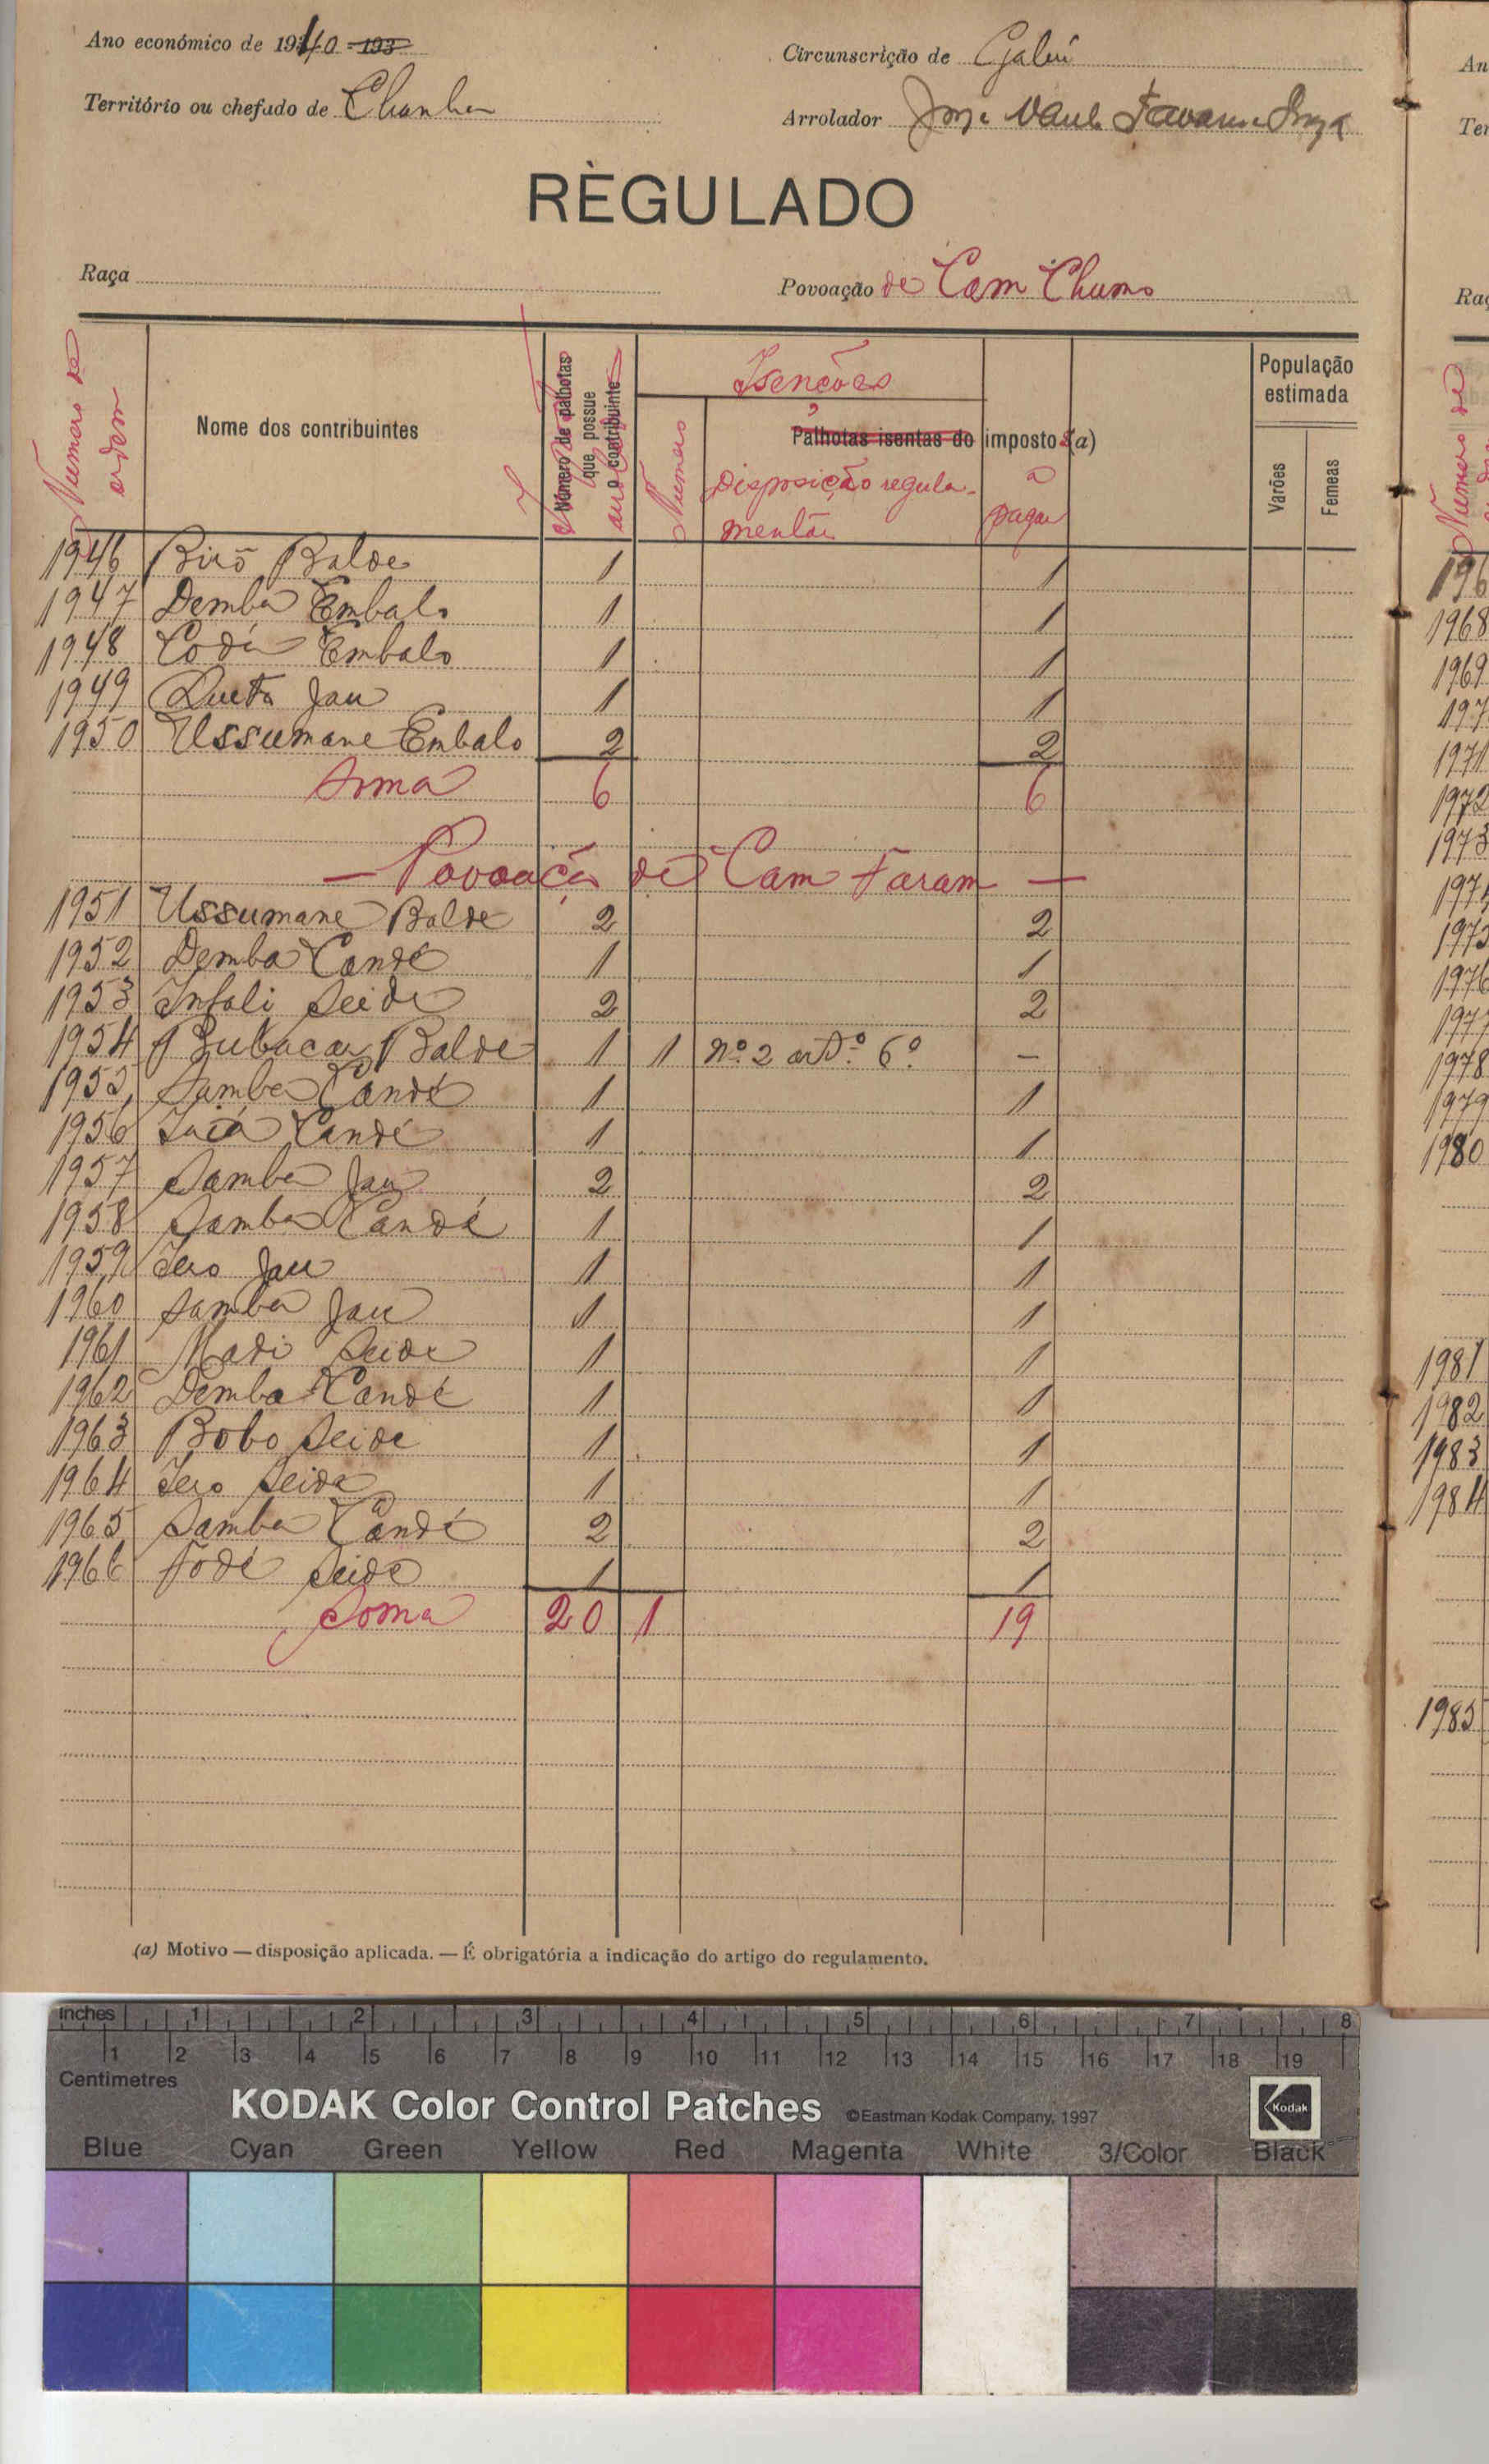 Ano económico de 1940 - 193
Circunscrição de Gabú
Território ou chefado de Chanha
Arrolador
RÈGULADO
Raça
Povoação de Cam Chumo
Numero de ordem
Nome dos contribuintes
Número de palhotas que possue o contribuinte
Isenções
Numero
Palhotas isentas do imposto (a)
Disposição regulamentar
a pagar
População estimada
Varões
Femeas
1946 Biró Balde 1 1
1947 Demba Embalo 1 1
1948 Codé Embalo 1 1
1949 Queta Jau 1 1
1950 Ussumane Embalo 2 2
Soma 6 6
— Povoação de Cam Faram —
1951 Ussumane Balde 2 2
1952 Demba Candé 1 1
1953 Infali Seide 2 2
1954 Bubacar Balde 1 1 nº 2 artº 6º –
1955 Samba Candé 1 1
1956 Candé 1 1
1957 Samba Jau 2 2
1958 Samba Candé 1 1
1959 Iero Jau 1 1
1960 Samba Jau 1 1
1961 Madi Seide 1 1
1962 Demba Candé 1 1
1963 Bobo Seide 1 1
1964 Iero Seide 1 1
1965 Samba Candé 2 2
1966 Fodé Seide 1 1
Soma 20 1 19
(a) Motivo — disposição aplicada. — É obrigatória a indicação do artigo do regulamento.
An
Ter
Raç
Numero de
196
1968
1969
197
1971
1972
1973
197
1975
1976
1977
1978
1979
1980
1981
1982
1983
1984
1985
inches 1 2 3 4 5 6 7 8
1 2 3 4 5 6 7 8 9 10 11 12 13 14 15 16 17 18 19
Centimetres
KODAK Color Control Patches ©Eastman Kodak Company, 1997 Kodak
Blue Cyan Green Yellow Red Magenta White 3/Color Black